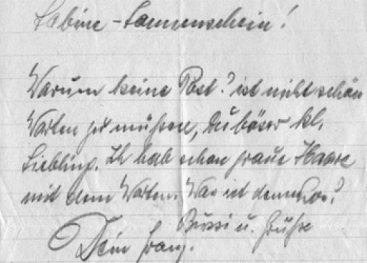 Sabine-Sonnenschein!
Warum keine Post? ist nicht schön
Warten zu müssen, Du böser kl.
Liebling. Ich hab schon graue Haare
mit dem Warten. Was ist denn los?
Bussi u. Grüße
Dein Franz.